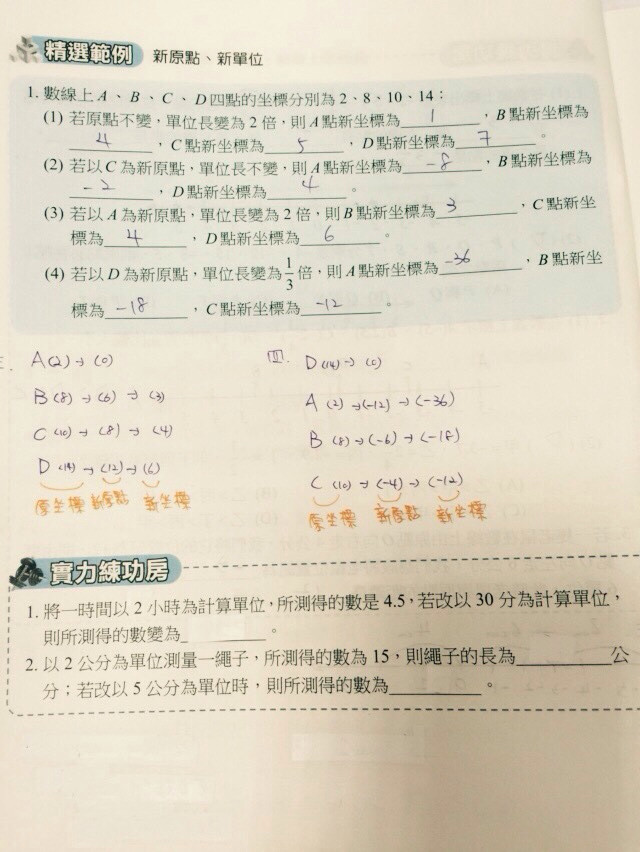 精選範例 新原點、新單位
1. 數線上 A、B、C、D 四點的坐標分別為 2、8、10、14：
(1) 若原點不變，單位長變為 2 倍，則 A 點新坐標為 1 ，B 點新坐標為
4 ，C 點新坐標為 5 ，D 點新坐標為 7 。
(2) 若以 C 為新原點，單位長不變，則 A 點新坐標為 -8 ，B 點新坐標為
-2 ，D 點新坐標為 4 。
(3) 若以 A 為新原點，單位長變為 2 倍，則 B 點新坐標為 3 ，C 點新坐
標為 4 ，D 點新坐標為 6 。
(4) 若以 D 為新原點，單位長變為 1/3 倍，則 A 點新坐標為 -36 ，B 點新坐
標為 -18 ，C 點新坐標為 -12 。
A(2) → (0)
B(8) → (6) → (3)
C(10) → (8) → (4)
D(14) → (12) → (6)
原坐標 新原點 新坐標
D(14) → (0)
A(2) → (-12) → (-36)
B(8) → (-6) → (-18)
C(10) → (-4) → (-12)
原坐標 新原點 新坐標
實力練功房
1. 將一時間以 2 小時為計算單位，所測得的數是 4.5，若改以 30 分為計算單位，
則所測得的數變為 。
2. 以 2 公分為單位測量一繩子，所測得的數為 15，則繩子的長為 公
分；若改以 5 公分為單位時，則所測得的數為 。